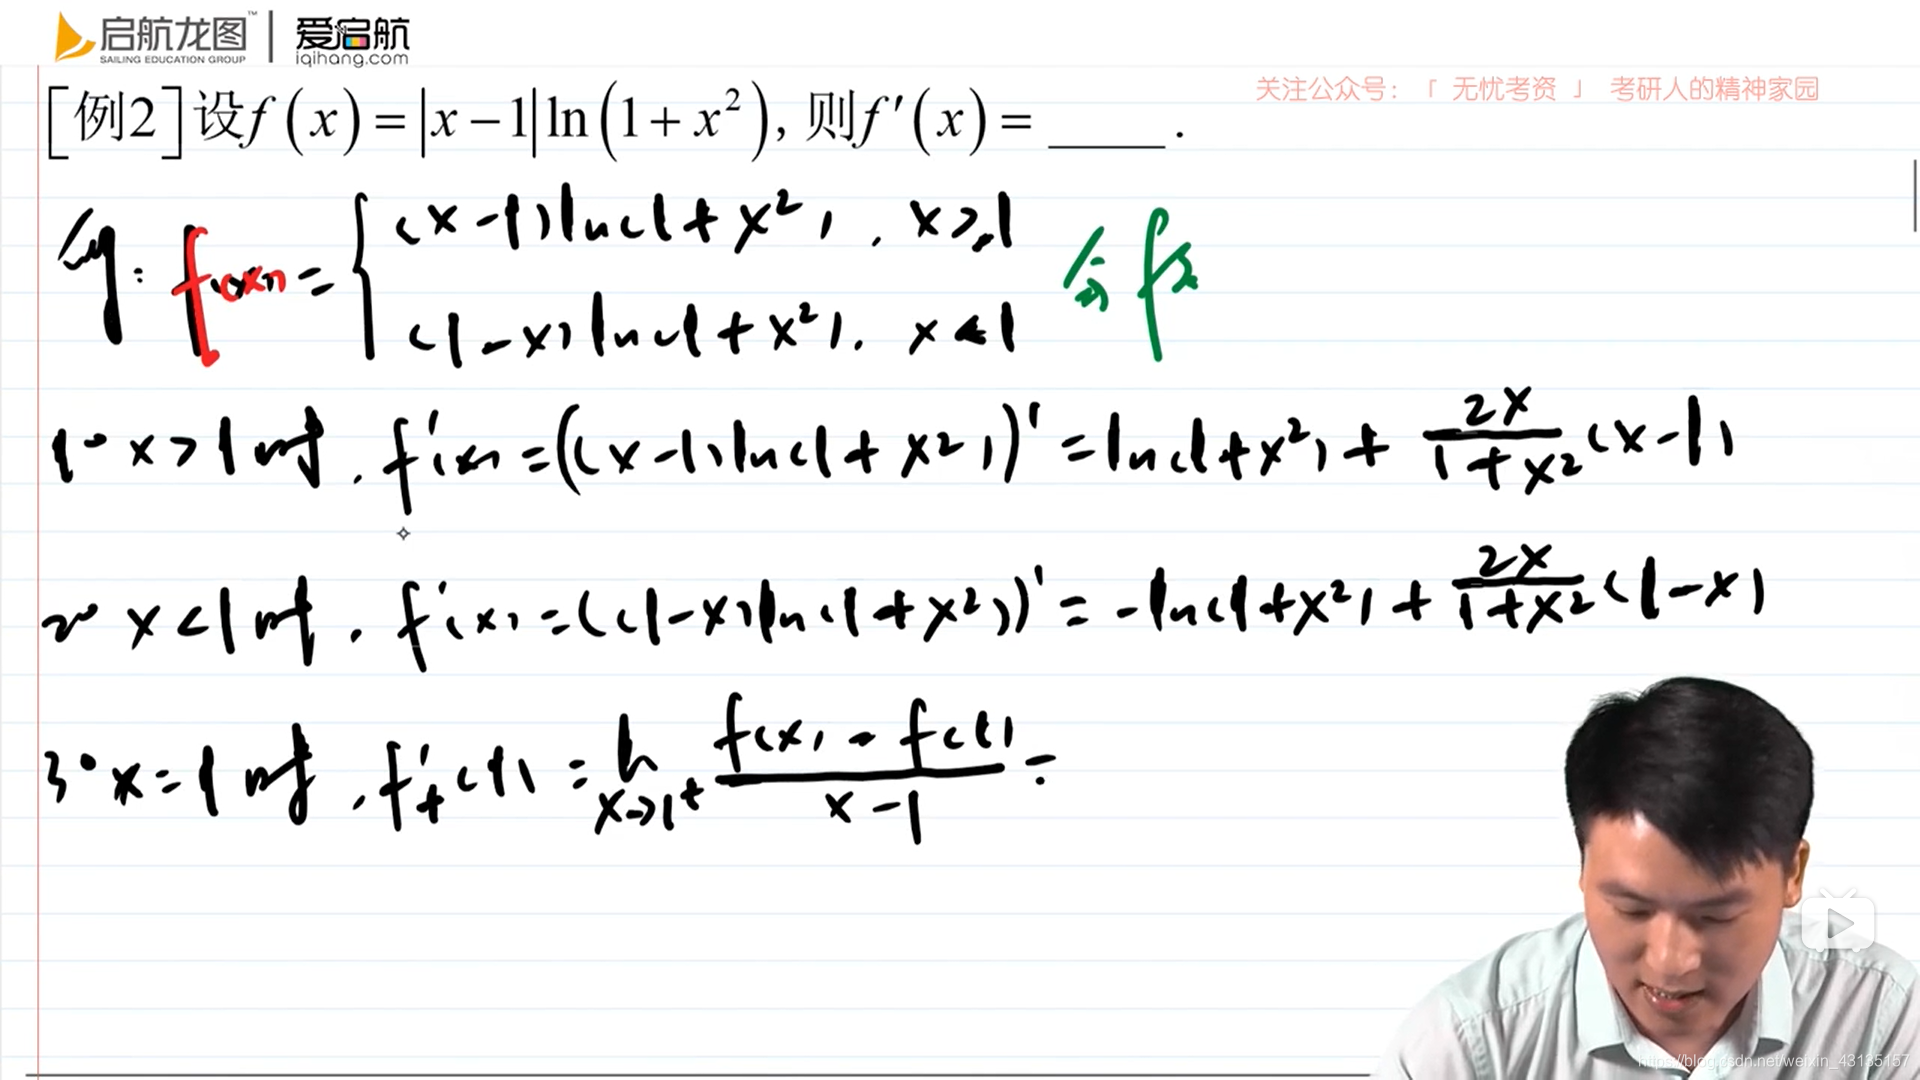 启航龙图™ 爱启航
SAILING EDUCATION GROUP iqihang.com
关注公众号：「 无忧考资 」 考研人的精神家园
[例2]设f(x)=|x-1|ln(1+x²), 则f′(x)=_____.
f(x)= { (x-1)ln(1+x²), x≥1
(1-x)ln(1+x²), x<1
1° x>1时, f'(x)=((x-1)ln(1+x²))'=ln(1+x²)+2x/(1+x²)(x-1)
2° x<1时, f'(x)=((1-x)ln(1+x²))'=-ln(1+x²)+2x/(1+x²)(1-x)
3° x=1时, f'₊(1)=lim x→1⁺ (f(x)-f(1))/(x-1)=
https://blog.csdn.net/weixin_43135157